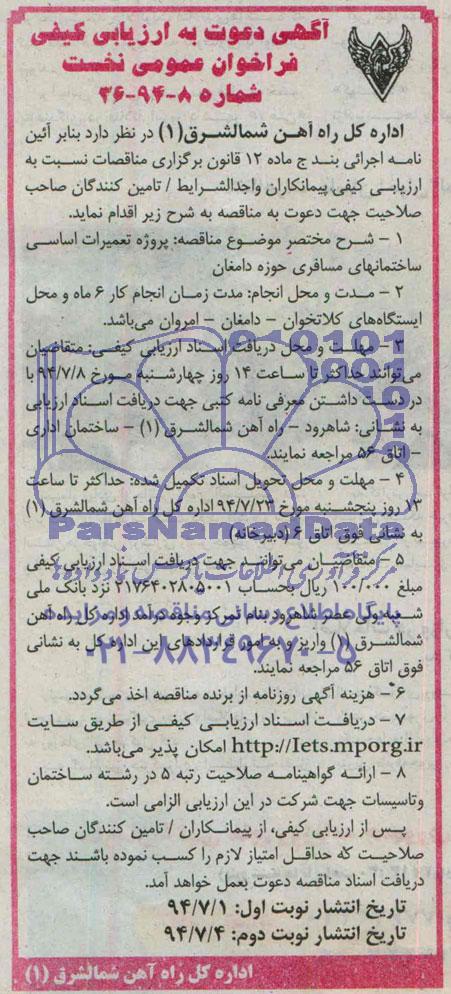 آگهی دعوت به ارزیابی کیفی
فراخوان عمومی نخست
شماره ۸-۹۴-۳۶
اداره کل راه آهن شمالشرق(۱) در نظر دارد بنابر آئین
نامه اجرائی بند ج ماده ۱۲ قانون برگزاری مناقصات نسبت به
ارزیابی کیفی پیمانکاران واجدالشرایط / تامین کنندگان صاحب
صلاحیت جهت دعوت به مناقصه به شرح زیر اقدام نماید.
۱ - شرح مختصر موضوع مناقصه: پروژه تعمیرات اساسی
ساختمانهای مسافری حوزه دامغان
۲ - مدت و محل انجام: مدت زمان انجام کار ۶ ماه و محل
ایستگاه‌های کلاتخوان - دامغان - امروان می‌باشد.
۳ - مهلت و محل دریافت اسناد ارزیابی کیفی: متقاضیان
می‌توانند حداکثر تا ساعت ۱۴ روز چهارشنبه مورخ ۹۴/۷/۸ با
در دست داشتن معرفی نامه کتبی جهت دریافت اسناد ارزیابی
به نشانی: شاهرود - راه آهن شمالشرق (۱) - ساختمان اداری
- اتاق ۵۶ مراجعه نمایند.
۴ - مهلت و محل تحویل اسناد تکمیل شده: حداکثر تا ساعت
۱۳ روز پنجشنبه مورخ ۹۴/۷/۲۳ اداره کل راه آهن شمالشرق (۱)
به نشانی فوق اتاق ۶ (دبیرخانه)
۵ - متقاضیان می‌توانند جهت دریافت اسناد ارزیابی کیفی
مبلغ ۱۰۰/۰۰۰ ریال بحساب ۲۱۷۶۴۰۲۸۰۵۰۰۱ نزد بانک ملی
شعبه ولی عصر شاهرود بنام تمرکز وجوه درآمد اداره کل راه آهن
شمالشرق (۱) واریز و به امور قراردادهای این اداره کل به نشانی
فوق اتاق ۵۶ مراجعه نمایند.
۶ - هزینه آگهی روزنامه از برنده مناقصه اخذ می‌گردد.
۷ - دریافت اسناد ارزیابی کیفی از طریق سایت
http://Iets.mporg.ir امکان پذیر می‌باشد.
۸ - ارائه گواهینامه صلاحیت رتبه ۵ در رشته ساختمان
وتاسیسات جهت شرکت در این ارزیابی الزامی است.
پس از ارزیابی کیفی، از پیمانکاران / تامین کنندگان صاحب
صلاحیت که حداقل امتیاز لازم را کسب نموده باشند جهت
دریافت اسناد مناقصه دعوت بعمل خواهد آمد.
تاریخ انتشار نوبت اول: ۹۴/۷/۱
تاریخ انتشار نوبت دوم: ۹۴/۷/۴
اداره کل راه آهن شمالشرق (۱)
ParsNamadData
مرکز فرآوری اطلاعات پارس نماد داده‌ها
پایگاه اطلاع رسانی مناقصه و مزایده
۰۲۱-۸۸۳۴۹۶۷۰-۵